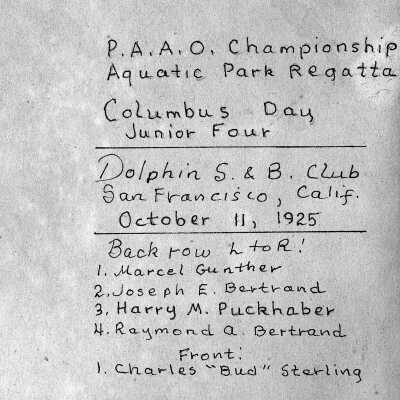 P.A.A.O. Championship
Aquatic Park Regatta
Columbus Day
Junior Four
Dolphin S. & B. Club
San Francisco, Calif.
October 11, 1925
Back row L to R!
1. Marcel Gunther
2. Joseph E. Bertrand
3. Harry M. Puckhaber
4. Raymond A. Bertrand
Front:
1. Charles "Bud" Sterling